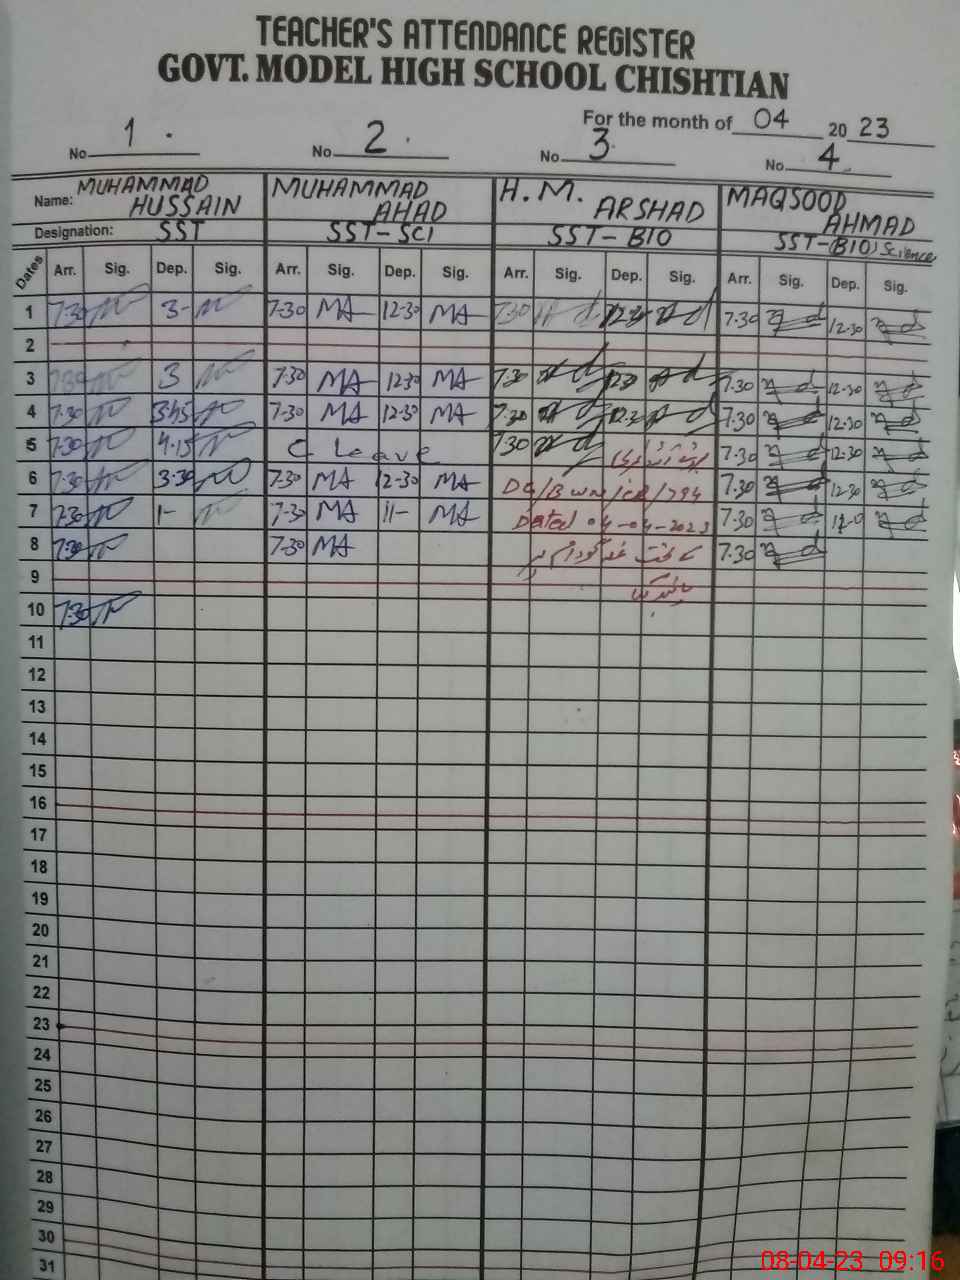 TEACHER'S ATTENDANCE REGISTER
GOVT. MODEL HIGH SCHOOL CHISHTIAN
For the month of 04 2023
No 1 No 2 No 3 No 4
Name: MUHAMMAD HUSSAIN MUHAMMAD AHAD H.M. ARSHAD MAQSOOD AHMAD
Designation: SST SST-SCI SST-BIO SST-(BIO) Science
Dates Arr. Sig. Dep. Sig. Arr. Sig. Dep. Sig. Arr. Sig. Dep. Sig. Arr. Sig. Dep. Sig.
1 7.30 3- 7-30 MA 12-30 MA 7.30 12.30 7.30 12.30
2
3 7.30 3 7.30 MA 12.30 MA 7.30 7.30 12.30
4 7.30 3.45 7-30 MA 12-30 MA 7.30 12.30 7.30 12.30
5 7.30 4.15 C Leave 7.30 7.30 12.30
6 7.30 3.30 7-30 MA 12-30 MA 7.30 12.30
7 7.30 1- 7-30 MA 11- MA Dated 04-04-2023 7.30
8 7.30 7-30 MA 7.30
9
10 7.30
11
12
13
14
15
16
17
18
19
20
21
22
23
24
25
26
27
28
29
30
31
08-04-23 09:16